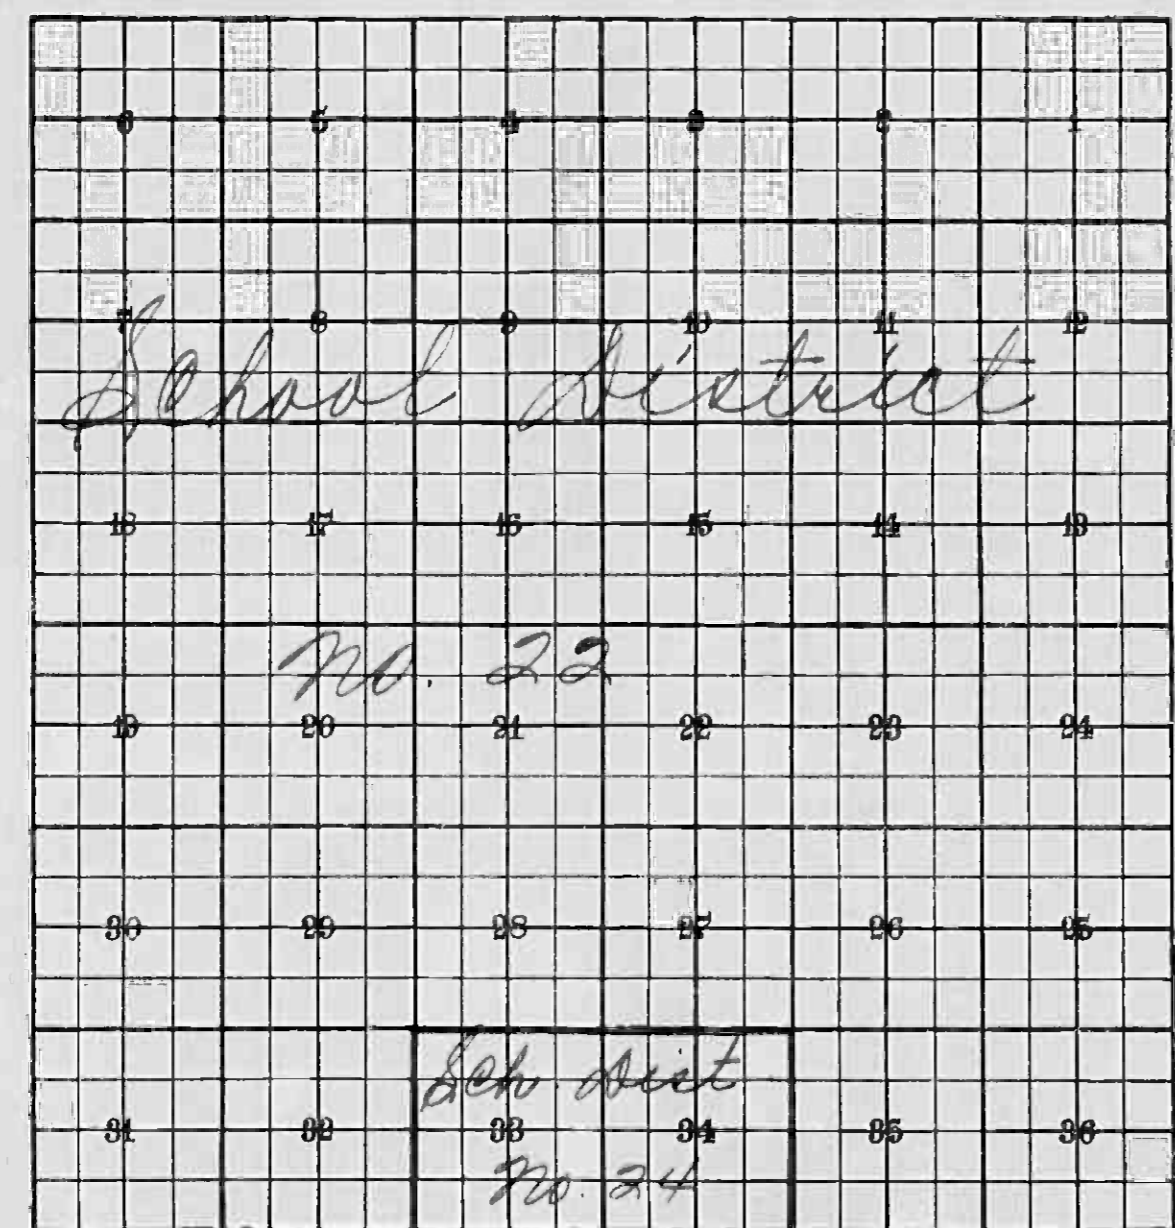 6 5 4 3 2 1
7 8 9 10 11 12
School District
18 17 16 15 14 13
No. 22
19 20 21 22 23 24
30 29 28 27 26 25
Sch. Dist
31 32 33 34 35 36
No. 24